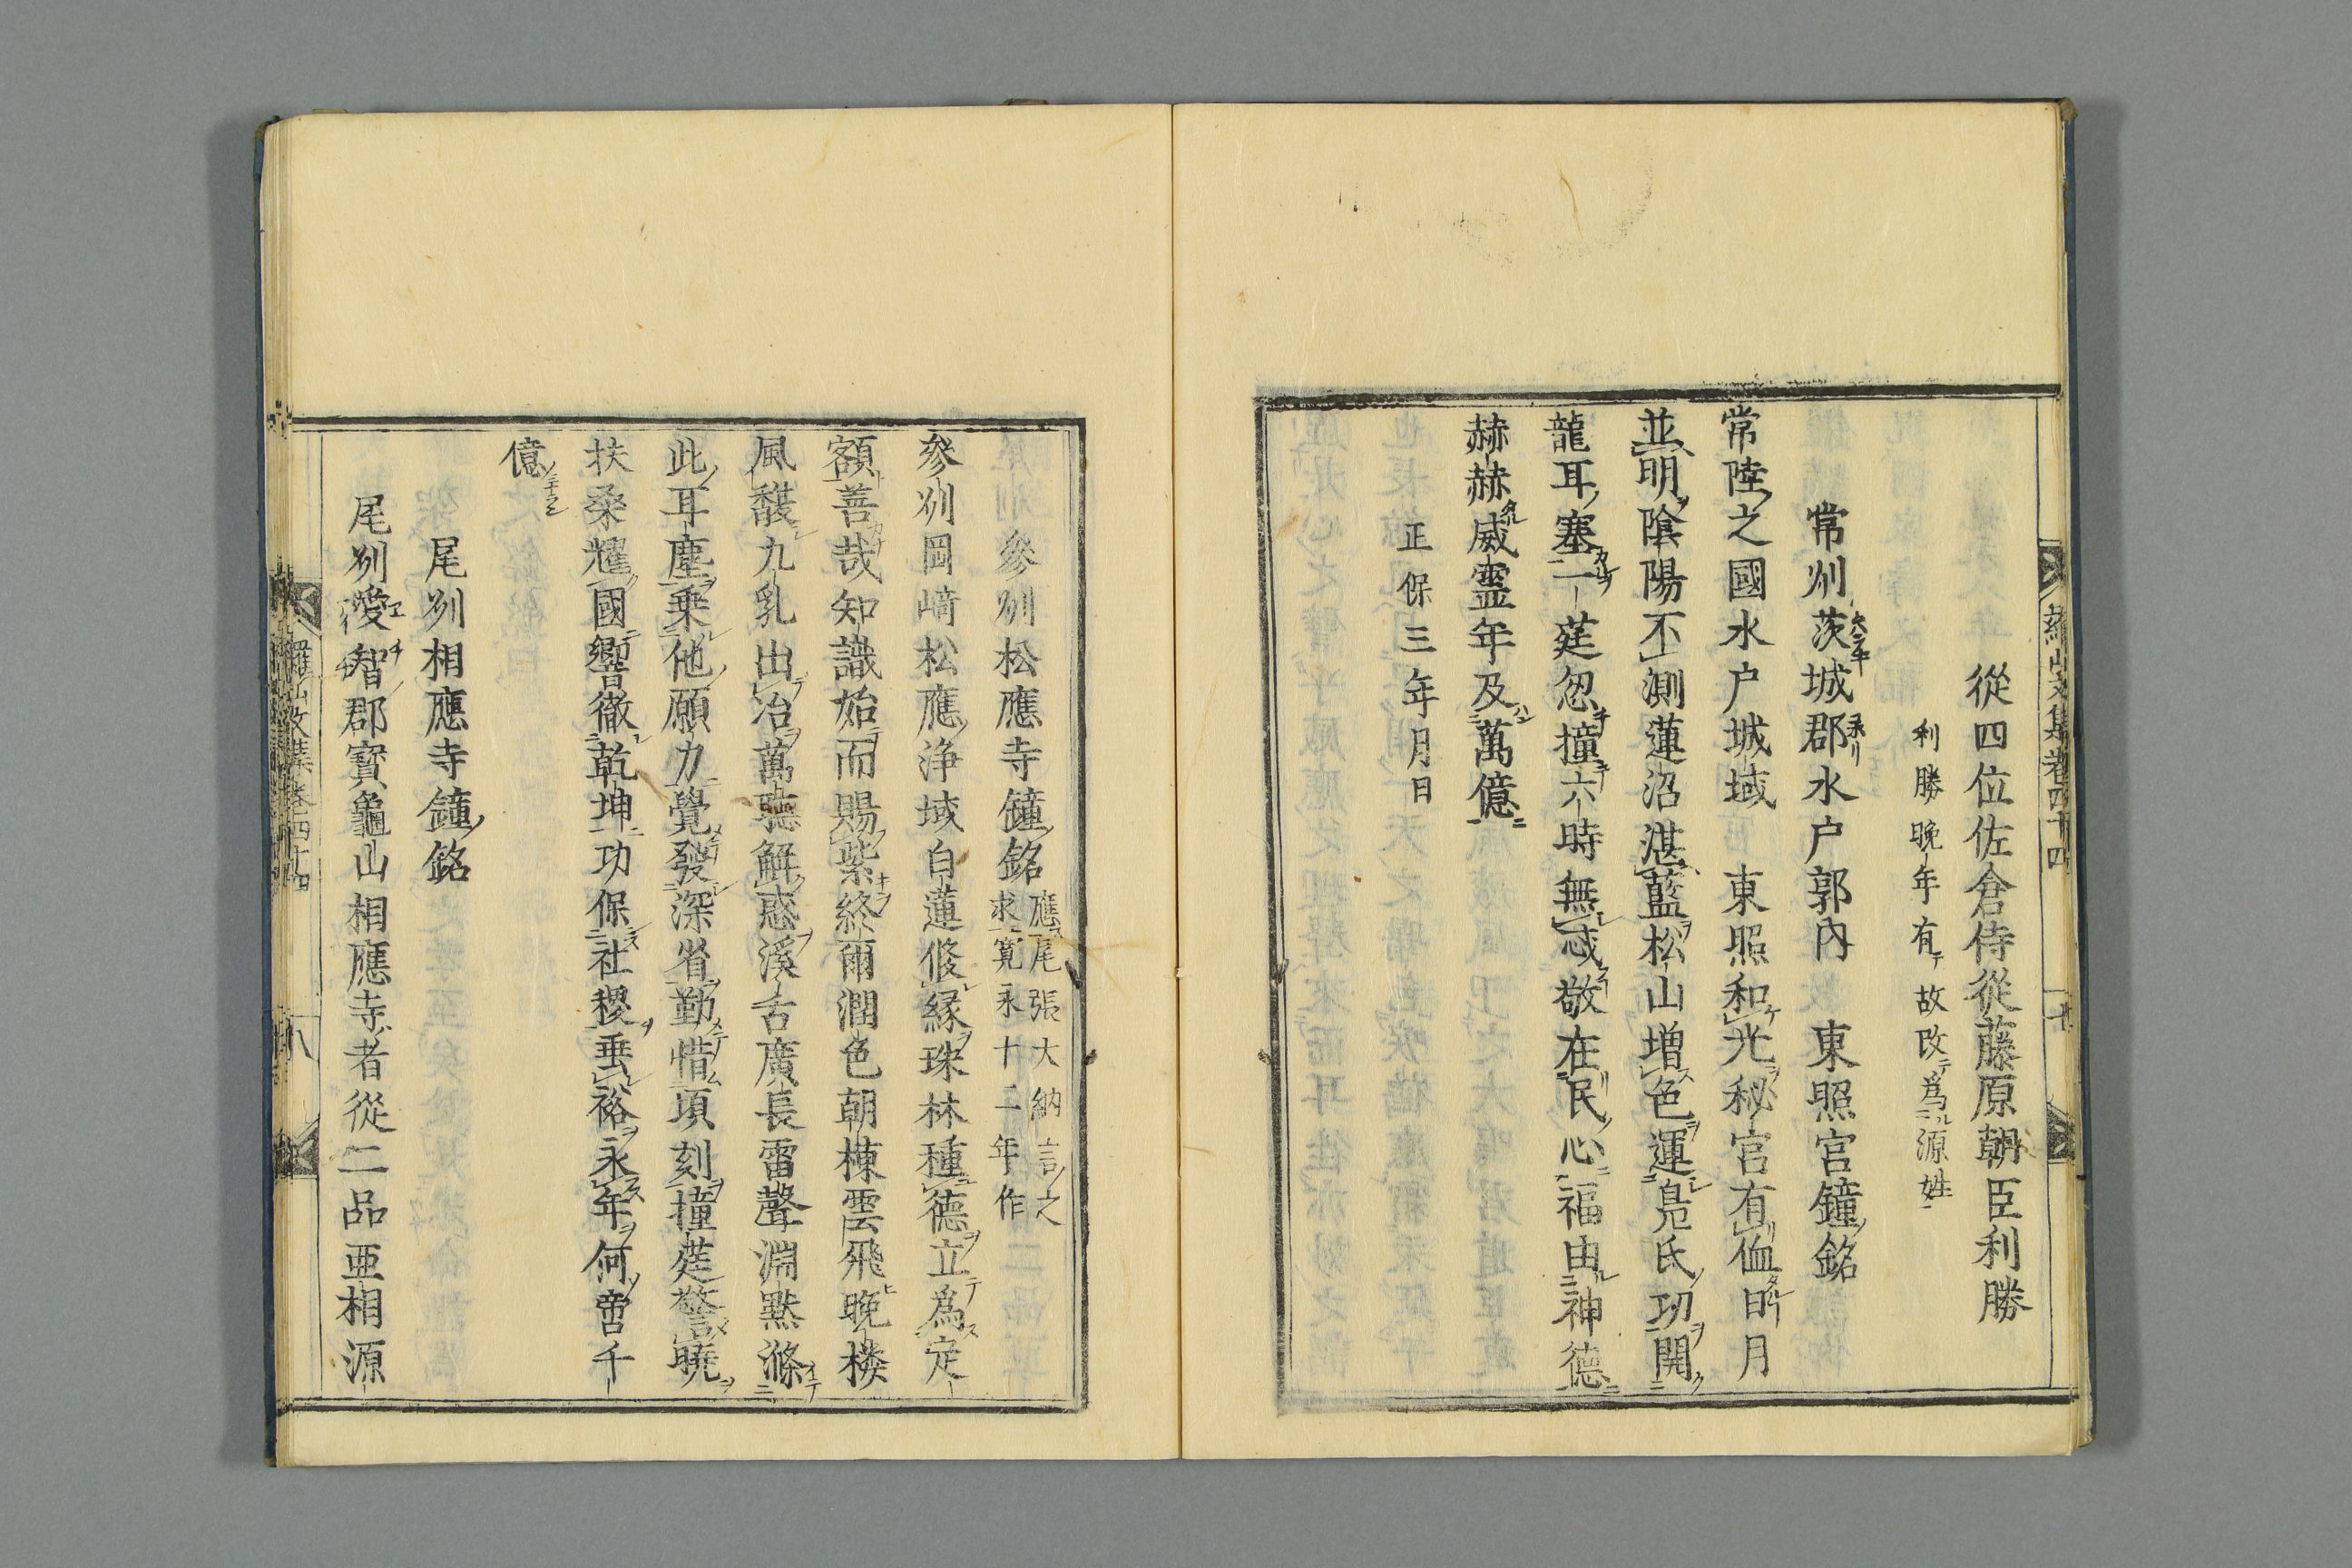 從四位佐倉侍從藤原朝臣利勝
利勝晚年有故改爲源姓
常州茨城郡水户郭內　東照宮鐘銘
常陸之國水户城域　東照和光秘宮有侐日月
並明陰陽不測蓮沼湛藍松山増色運鳧氏功開
龍耳塞一莛忽撞六時無忒敬在民心福由神德
赫赫威靈年及萬億
正保三年月日
參州松應寺鐘銘 應尾張大納言之求寛永十二年作
參州岡﨑松應浄域白蓮修縁珠林種德立爲定
額善哉知識始而賜紫終爾潤色朝棟雲飛晚楼
風馥九乳出冶萬聴解惑溪舌廣長雷聲淵黙滌
此耳塵乗他願力覺發深省勤惜頃刻撞莛警曉
扶桑耀國響徹乾坤功保社稷垂裕永年何啻千
億
尾州相應寺鐘銘
尾州愛智郡寶龜山相應寺者從二品亜相源
羅山文集卷四十四
八